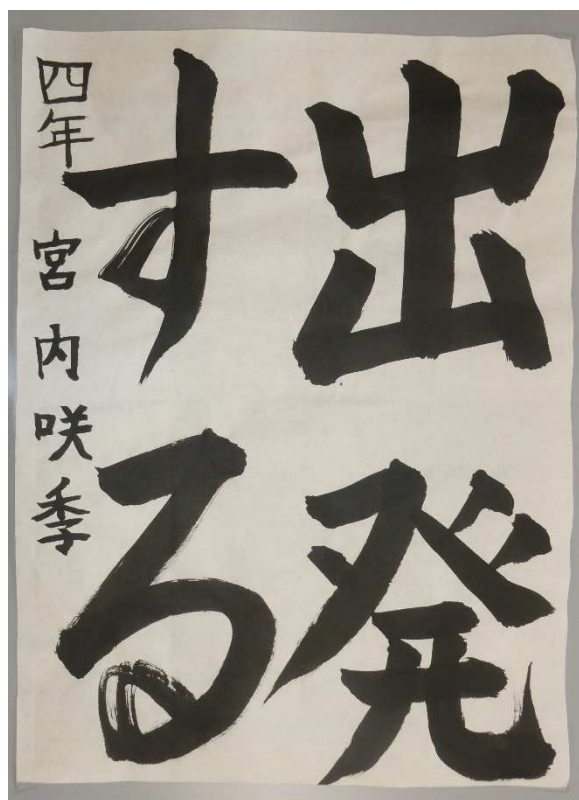 出発
する
四年 宮内咲季